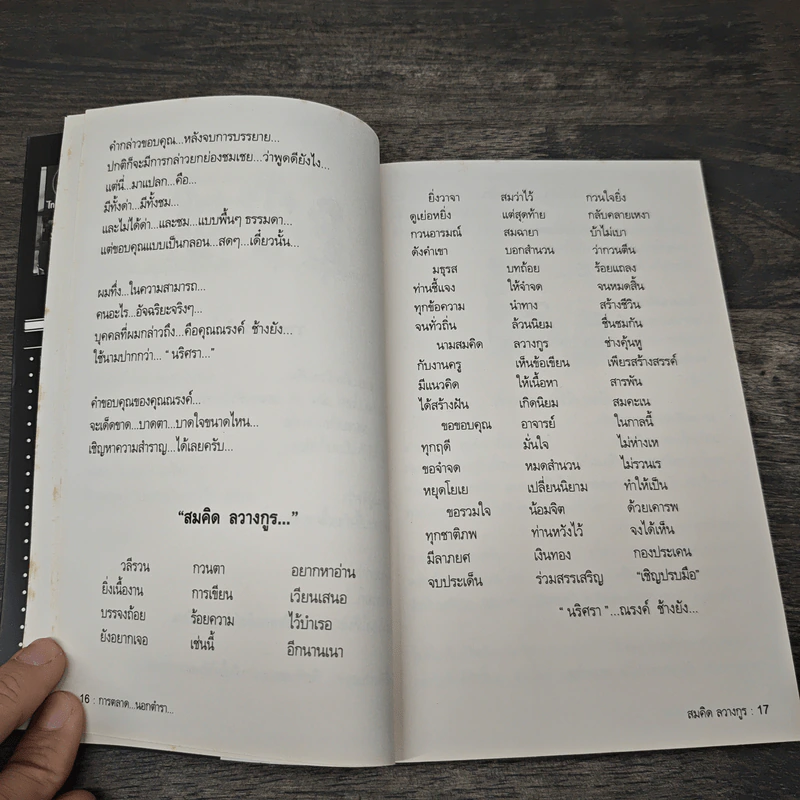 คำกล่าวขอบคุณ...หลังจบการบรรยาย...
ปกติก็จะมีการกล่าวยกย่องชมเชย...ว่าพูดดียังไง...
แต่นี่...มาแปลก...คือ...
มีทั้งด่า...มีทั้งชม...
และไม่ได้ด่า...และชม...แบบพื้นๆ ธรรมดา...
แต่ขอบคุณแบบเป็นกลอน...สดๆ...เดี๋ยวนั้น...
ผมทึ่ง...ในความสามารถ...
คนอะไร...อัจฉริยะจริงๆ...
บุคคลที่ผมกล่าวถึง...คือคุณณรงค์ ช้างยัง...
ใช้นามปากกาว่า... “ นริศรา...”
คำขอบคุณของคุณณรงค์...
จะเด็ดขาด...บาดตา...บาดใจขนาดไหน...
เชิญหาความสำราญ...ได้เลยครับ...
“สมคิด ลวางกูร...”
วลีรวน กวนตา อยากหาอ่าน
ยิ่งเนื้องาน การเขียน เวียนเสนอ
บรรจงถ้อย ร้อยความ ไว้บำเรอ
ยังอยากเจอ เช่นนี้ อีกนานเนา
16 : การตลาด...นอกตำรา...
ยิ่งวาจา สมว่าไว้ กวนใจยิ่ง
ดูเย่อหยิ่ง แต่สุดท้าย กลับคลายเหงา
กวนอารมณ์ สมฉายา บ้าไม่เบา
ดังคำเขา บอกสำนวน ว่ากวนตีน
มธุรส บทถ้อย ร้อยแถลง
ท่านชี้แจง ให้จำจด จนหมดสิ้น
ทุกข้อความ นำทาง สร้างชีวิน
จนทั่วถิ่น ล้วนนิยม ชื่นชมกัน
นามสมคิด ลวางกูร ช่างคุ้นหู
กับงานครู เห็นข้อเขียน เพียรสร้างสรรค์
มีแนวคิด ให้เนื้อหา สารพัน
ได้สร้างฝัน เกิดนิยม สมคะเน
ขอขอบคุณ อาจารย์ ในกาลนี้
ทุกฤดี มั่นใจ ไม่ห่างเห
ขอจำจด หมดสำนวน ไม่รวนเร
หยุดโยเย เปลี่ยนนิยาม ทำให้เป็น
ขอรวมใจ น้อมจิต ด้วยเคารพ
ทุกชาติภพ ท่านหวังไว้ จงได้เห็น
มีลาภยศ เงินทอง กองประเคน
จบประเด็น ร่วมสรรเสริญ “เชิญปรบมือ”
“ นริศรา ”...ณรงค์ ช้างยัง...
สมคิด ลวางกูร : 17